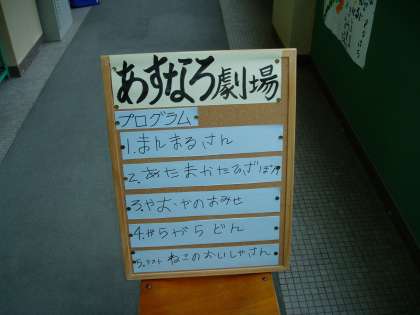 あすなろ劇場
プログラム
1.まんまるさん
2.あたまかたひざぽん
3.やおやのおみせ
4.がらがらどん
5.ラスト ねこのおいしゃさん